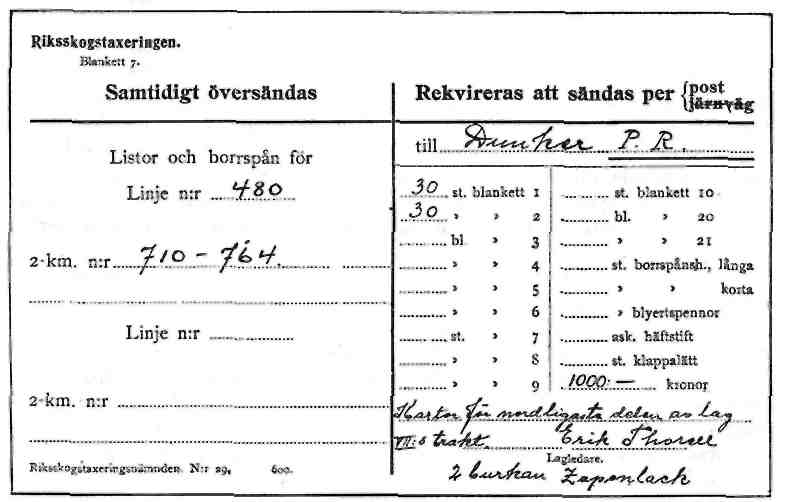 Riksskogstaxeringen.
Blankett 7.
Samtidigt översändas
Listor och borrspån för
Linje n:r 480
2-km. n:r 710 - 764.
Linje n:r
2-km. n:r
Riksskogstaxeringsnämnden. N:r 29. 600.
Rekvireras att sändas per {post
järnväg
till Dunker P. R.
30 st. blankett 1
30 » » 2
bl. » 3
» » 4
» » 5
» » 6
st. » 7
» » 8
» » 9
st. blankett 10
bl. » 20
» » 21
st. borrspånsh., långa
» » korta
» blyertspennor
ask. häftstift
st. klappalätt
1000:— kronor
Kartor för nordligaste delen av lag
VII:s trakt. Erik Thorell
Lagledare.
2 burkar Zaponlack